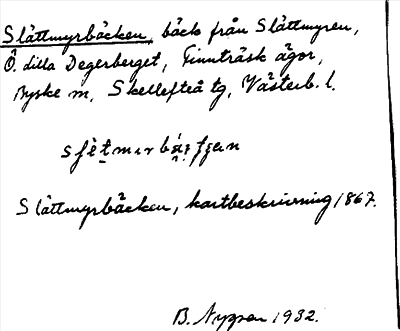 Slåttmyrbäcken, bäck från Slåttmyren,
Ö. Lilla Degerberget, Finnträsk ägor,
Byske sn, Skellefteå tg, Västerb. l.
Slåttmyrbäcken, kartbeskrivning 1867.
B. Nygren 1932.